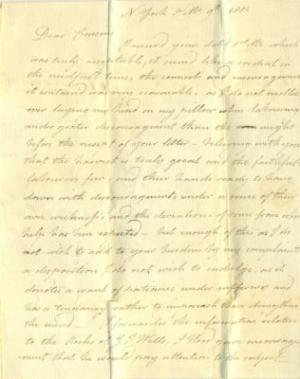 N York 2 Mo 9th
Dear Cousin
I received your dated 1st Mo which
was truly acceptable, it served like a cordial in
the needful time, the counsel and encouragement
it contained was very seasonable, as I do not recollect
ever laying my head on my pillow when labouring
under greater discouragement than the night
before the receipt of your letter - believing with you
that the harvest is truly great and the faithful
labourers few, and their hands ready to hang
down with discouragements under a sense of their
own weakness and the deviations of some from whom
help has been expected - but enough of this as I do
not wish to add to your burden by my complaint
a disposition I do not wish to indulge, as it
denotes a want of patience under sufferings and
has a tendency rather to than strengthen
the mind - I forwarded the information relative
to the Stocks of J J Wells, I Wood gave encourage
ment that he would pay attention to the subject